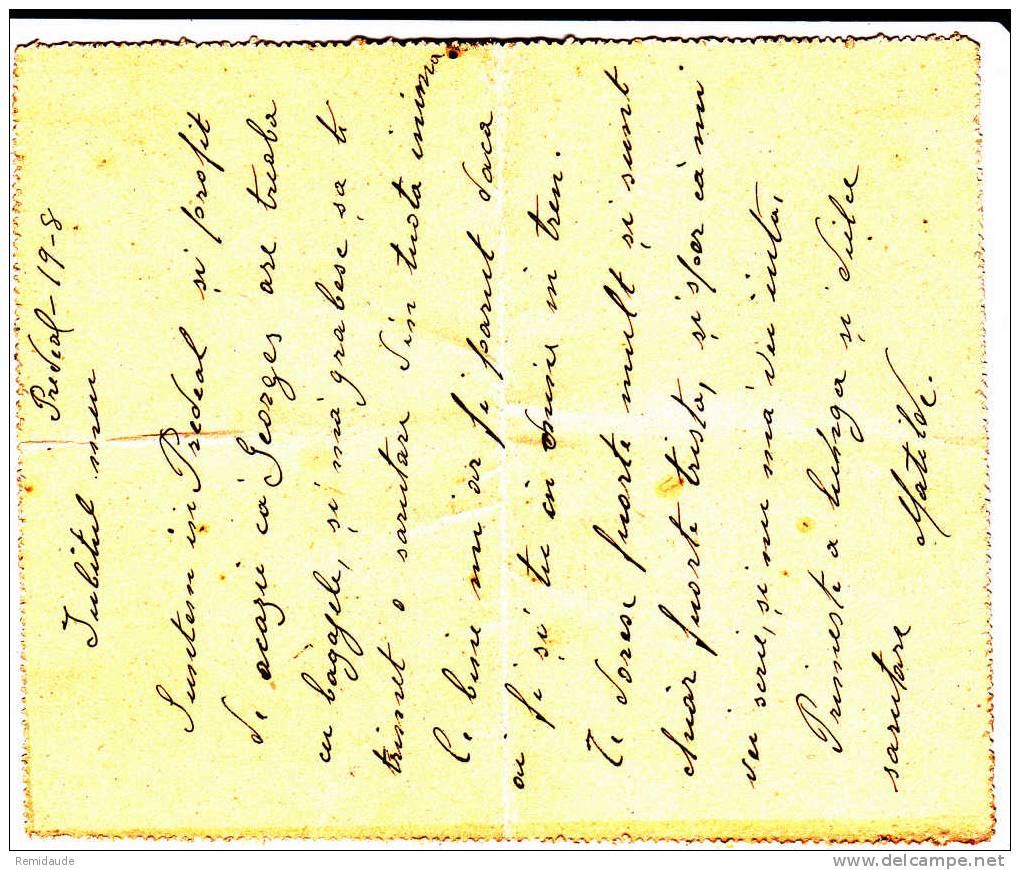 Predeal - 19-8
Iubitul meu
Suntem in Predeal și profit
de ocazie că Georges are treaba
cu bagajele, și mă grabesc să ti
trimet o sarutare din tuota inima
Ce bine mi ar fi parut daca
ai fi și tu in mine in tren.
Te doresc fuorte mult și sunt
chiar fuorte trista, și sper că mi
vei scrie, și nu mă vei uita,
Primeste a lunga și dulce
sarutare
Matilde.
Remidaude
www.delcampe.net